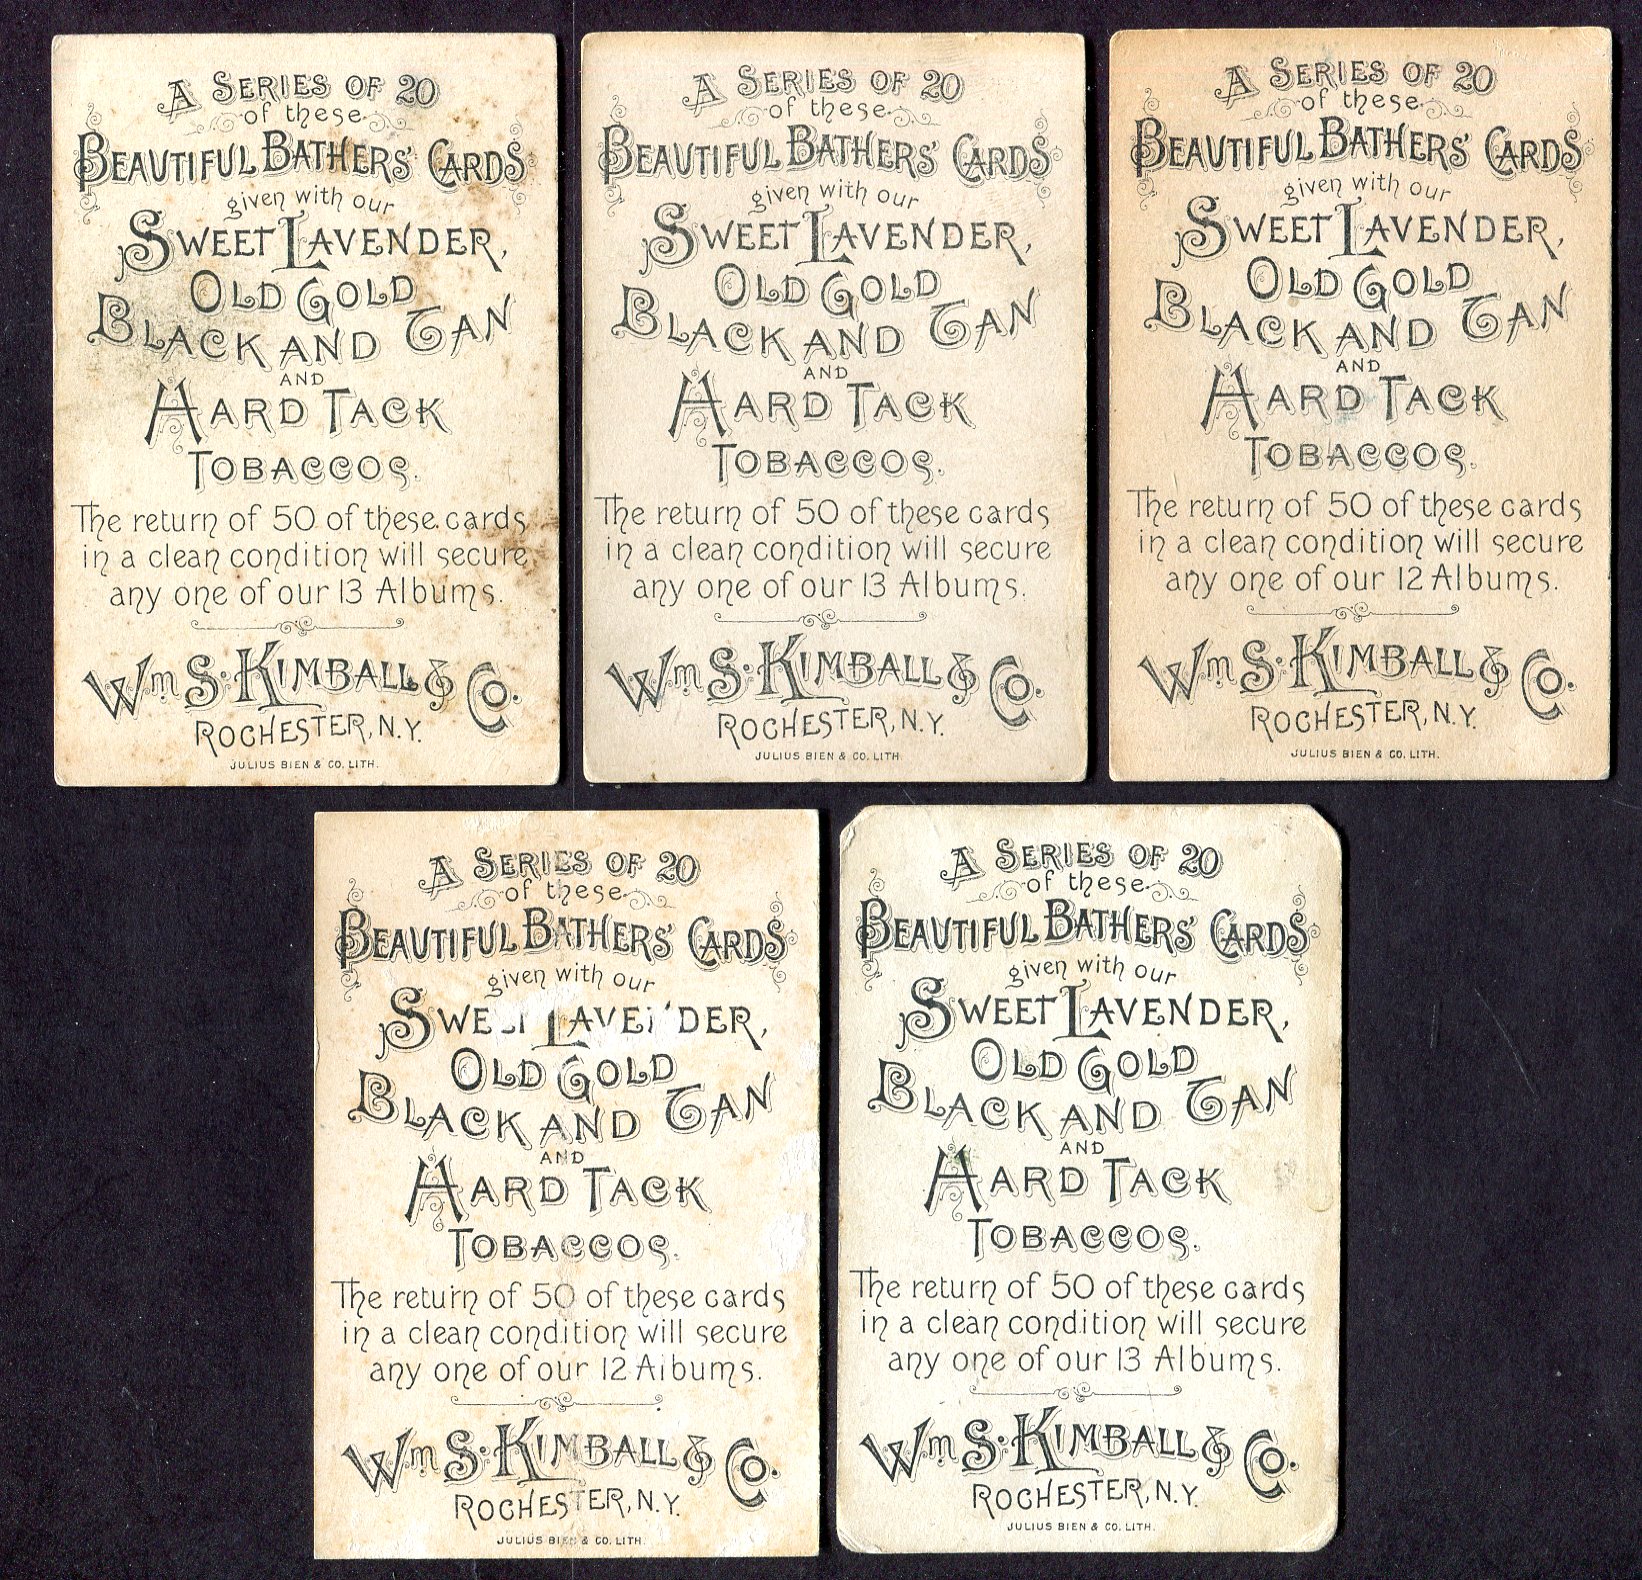 A SERIES OF 20
of these
BEAUTIFUL BATHERS' CARDS
given with our
SWEET LAVENDER,
OLD GOLD
BLACK AND TAN
AND
HARD TACK
TOBACCOS.
The return of 50 of these cards
in a clean condition will secure
any one of our 13 Albums.
Wm S. KIMBALL & Co.
ROCHESTER, N.Y.
JULIUS BIEN & CO. LITH.
A SERIES OF 20
of these
BEAUTIFUL BATHERS' CARDS
given with our
SWEET LAVENDER,
OLD GOLD
BLACK AND TAN
AND
HARD TACK
TOBACCOS.
The return of 50 of these cards
in a clean condition will secure
any one of our 13 Albums.
Wm S. KIMBALL & Co.
ROCHESTER, N.Y.
JULIUS BIEN & CO. LITH.
A SERIES OF 20
of these
BEAUTIFUL BATHERS' CARDS
given with our
SWEET LAVENDER,
OLD GOLD
BLACK AND TAN
AND
HARD TACK
TOBACCOS.
The return of 50 of these cards
in a clean condition will secure
any one of our 12 Albums.
Wm S. KIMBALL & Co.
ROCHESTER, N.Y.
JULIUS BIEN & CO. LITH.
A SERIES OF 20
of these
BEAUTIFUL BATHERS' CARDS
given with our
SWEET LAVENDER,
OLD GOLD
BLACK AND TAN
AND
HARD TACK
TOBACCOS.
The return of 50 of these cards
in a clean condition will secure
any one of our 12 Albums.
Wm S. KIMBALL & Co.
ROCHESTER, N.Y.
JULIUS BIEN & CO. LITH.
A SERIES OF 20
of these
BEAUTIFUL BATHERS' CARDS
given with our
SWEET LAVENDER,
OLD GOLD
BLACK AND TAN
AND
HARD TACK
TOBACCOS.
The return of 50 of these cards
in a clean condition will secure
any one of our 13 Albums.
Wm S. KIMBALL & Co.
ROCHESTER, N.Y.
JULIUS BIEN & CO. LITH.